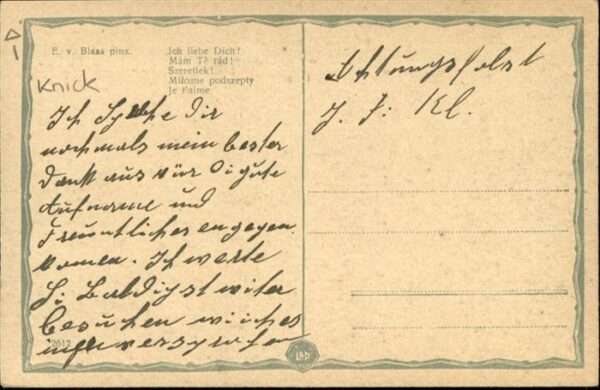 E. v. Blaas pinx.
Ich liebe Dich!
Mám Tě rád!
Szeretlek!
Miłosne podszepty
Je t'aime
Knick
Ich Spreche Dir
nochmals mein bester
Dank aus vür Di gute
Aufname und
Freuntliches engegen
komen. Ich werte
Baldigst witer
besuchen
Achtungsfolst
J. J. Kl.